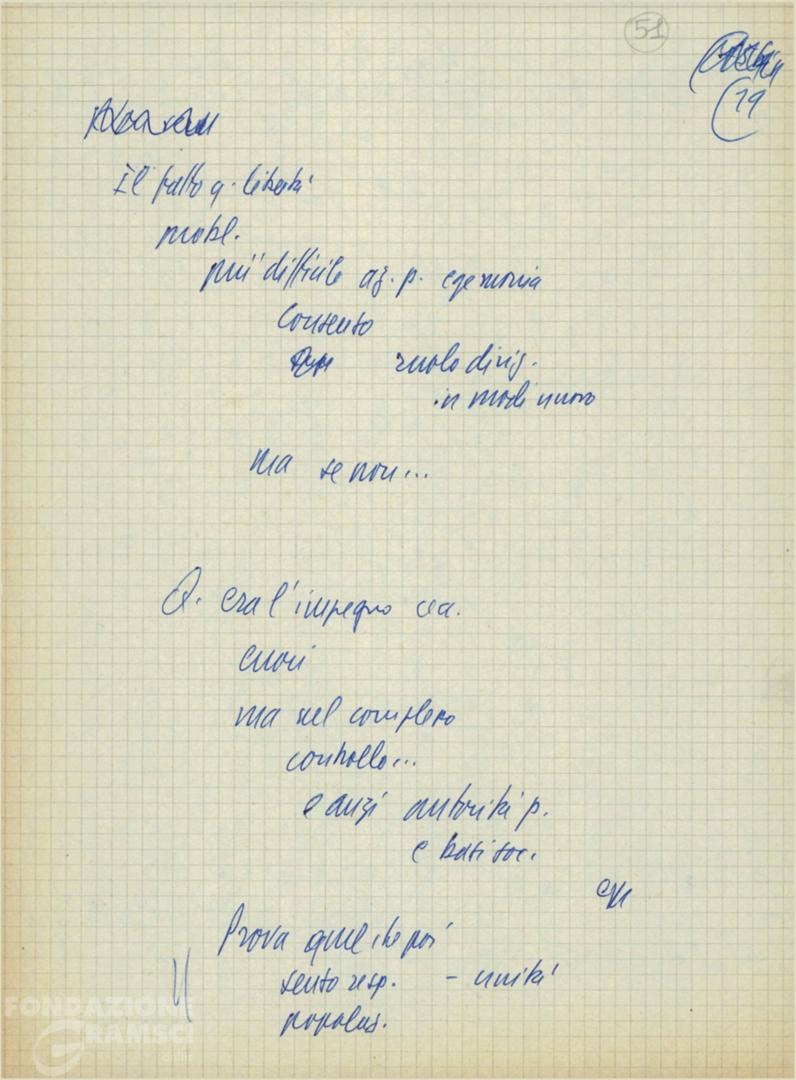 51
19
Il fatto q. libertà
probl.
più difficile az. p. egemonia
Consenso
ruolo dirig.
in modi nuovi
ma se non...
Q. era l'impegno
errori
ma nel complesso
controllo...
e anzi autorità p.
e basi soc.
Prova quel che poi
senso resp. - unità
popolaz.
FONDAZIONE
GRAMSCI